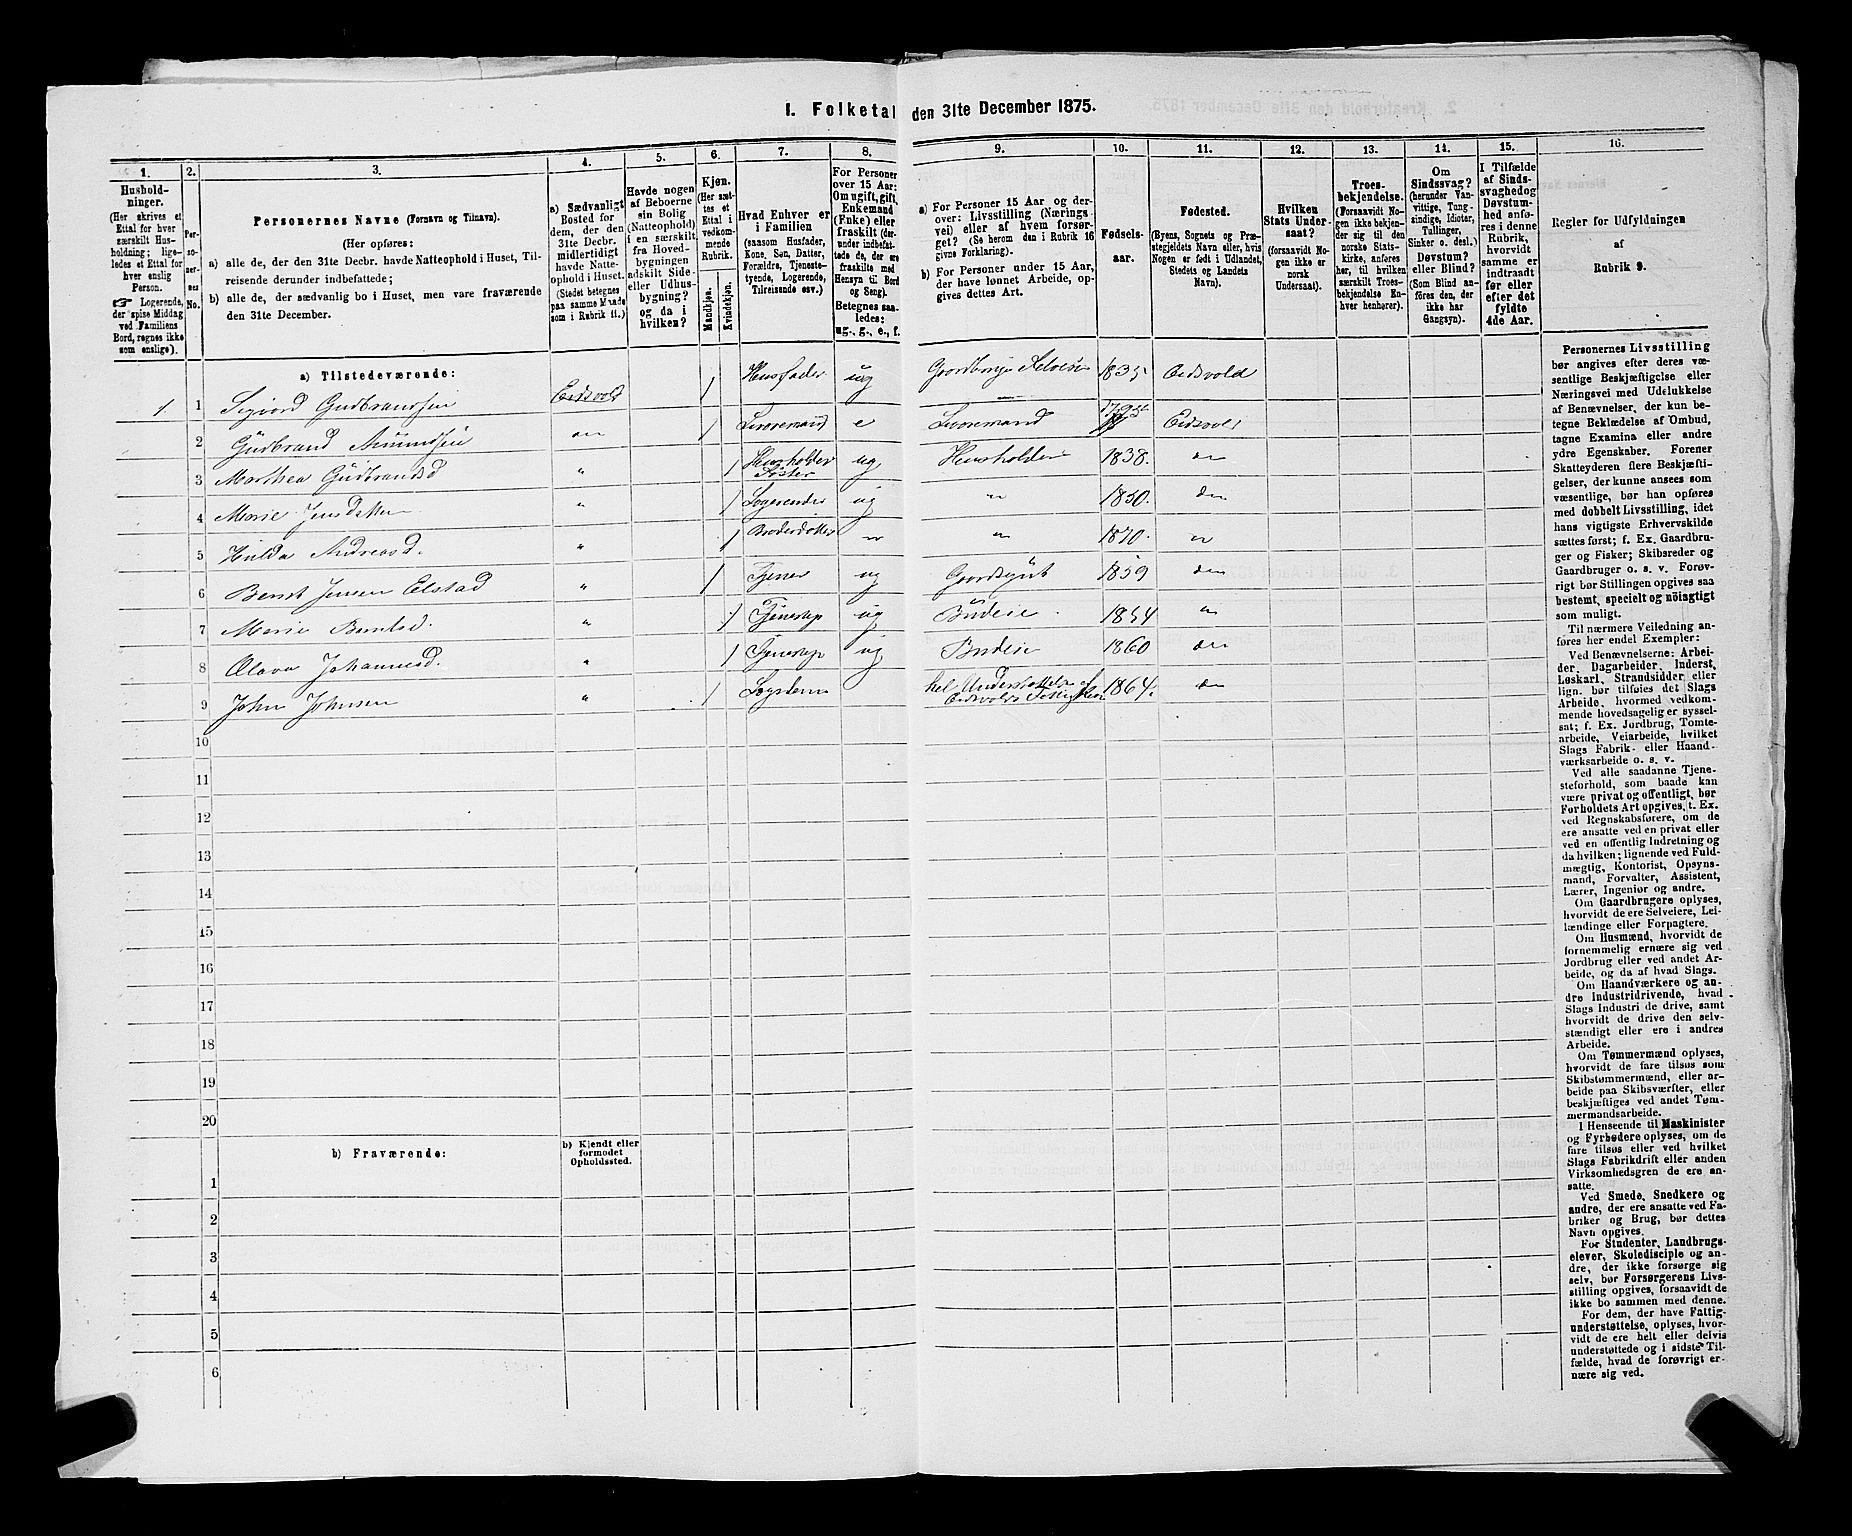 I. Folketal den 31te December 1875.
1.
Hushold-
ninger.
(Her skrives et
Ettal for hver
særskilt Hus-
holdning; lige-
ledes et Ettal for
hver enslig
Person.
☞ Logerende,
der spise Middag
ved Familiens
Bord, regnes ikke
som enslige).
2.
Per-
so-
ner-
nes
No.
3.
Personernes Navne (Fornavn og Tilnavn).
(Her opføres:
a) alle de, der den 31te Decbr. havde Natteophold i Huset, Til-
reisende derunder indbefattede;
b) alle de, der sædvanlig bo i Huset, men vare fraværende
den 31te December.
4.
a) Sædvanligt
Bosted for
dem, der den
31te Decbr.
midlertidigt
havde Natte-
ophold i Huset.
(Stedet betegnes
paa samme Maade
som i Rubrik 11.)
5.
Havde nogen
af Beboerne
sin Bolig
(Natteophold)
i en særskilt
fra Hoved-
bygningen
adskilt Side-
eller Udhus-
bygning?
og da i
hvilken?
6.
Kjøn.
(Her sæt-
tes et
Ettal i
vedkom-
mende
Rubrik.
Mandkjøn.
Kvindekjøn.
7.
Hvad Enhver er
i Familien
(saasom Husfader,
Kone, Søn, Datter,
Forældre, Tjeneste-
tyende, Logerende,
Tilreisende osv.)
8.
For Personer
over 15 Aar:
Om ugift, gift,
Enkemand
(Enke) eller
fraskilt (der-
under indbefat-
tede de, der ere
fraskilte med
Hensyn til Bord
og Seng).
Betegnes saa-
ledes:
ug., g., e., f.
9.
a) For Personer 15 Aar og der-
over: Livsstilling (Nærings-
vei) eller af hvem forsør-
get? (Se herom den i Rubrik 16
givne Forklaring).
b) For Personer under 15 Aar,
der have lønnet Arbeide, op-
gives dettes Art.
10.
Fødsels-
aar.
11.
Fødested.
(Byens, Sognets og Præ-
stegjeldets Navn eller, hvis
Nogen er født i Udlandet,
Stedets og Landets
Navn).
12.
Hvilken
Stats Under-
saat?
(forsaavidt No-
gen ikke er
norsk
Undersaat).
13.
Troes-
bekjendelse.
(Forsaavidt No-
gen ikke bekjen-
der sig til den
norske Stats-
kirke, anføres
her, til hvilken
særskilt Troes-
bekjendelse En-
hver henhører).
14.
Om
Sindssvag?
(herunder Van-
vittige, Tung-
sindige, Idioter,
Tullinger,
Sinker o. desl.)
Døvstum?
eller Blind?
(Som Blind an-
føres den, der
ikke har
Gangsyn).
15.
I Tilfælde
af Sinds-
svaghed og
Døvstum-
hed anfø-
res i denne
Rubrik,
hvorvidt
samme er
indtraadt
før eller
efter det
fyldte
4de Aar.
16.
Regler for Udfyldningen
af
Rubrik 9.
a) Tilstedeværende:
1. 1 Sigvord Gudbrandsen Eidsvold 1 Husfader ug Gaardbruger Selveier 1835 Eidsvold
2 Gudbrand Amundsen do 1 Livøremand e Livøremand 1795 Eidsvold
3 Marthea Gudbrandsd " 1 Husholder Søster ug Husholder 1838. do
4 Marie Jensdatter " 1 Logerende ug " 1850. do
5 Hulda Andreasd. " 1 Broderdatter " " 1870. "
6 Bernt Jensen Elstad " 1 Tjener ug Gaardsgut 1859 do
7 Marie Berntsd. " 1 Tjenestep ug Budeie 1854 "
8 Olava Johannesd. " 1 Tjenestep ug Budeie 1860 do
9 John Johnsen " 1 Lægdem hel Understøttelse af Eidsvolds 1864. do
10
11
12
13
14
15
16
17
18
19
20
b) Fraværende:
b) Kjendt eller
formodet
Opholdssted.
1
2
3
4
5
6
Personernes Livsstilling
bør angives efter deres væ-
sentlige Beskjæftigelse eller
Næringsvei med Udelukkelse
af Benævnelser, der kun be-
tegne Beklædelse af Ombud,
tagne Examina eller andre
ydre Egenskaber. Forener
Skatteyderen flere Beskjæfti-
gelser, der kunne ansees som
væsentlige, bør han opføres
med dobbelt Livsstilling, idet
hans vigtigste Erhvervskilde
sættes først; f. Ex. Gaardbru-
ger og Fisker; Skibsreder og
Gaardbruger o. s. v. Forøv-
rigt bør Stillingen opgives saa
bestemt, specielt og nöiagtigt
som muligt.
Til nærmere Veiledning an-
føres her endel Exempler:
Ved Benævnelserne: Arbei-
der, Dagarbeider, Inderst,
Løskarl, Strandsidder eller
lign. bør tilføies det Slags
Arbeide, hvormed vedkom-
mende hovedsagelig er syssel-
sat; f. Ex. Jordbrug, Tomte-
arbeide, Veiarbeide, hvilket
Slags Fabrik- eller Haand-
værksarbeide o. s. v.
Ved alle saadanne Tjene-
steforhold, som baade kan
være privat og offentligt, bør
Forholdets Art opgives, t. Ex.
ved Regnskabsførere, om de
ere ansatte ved en privat eller
ved en offentlig Indretning og
da hvilken; lignende ved Fuld-
mægtig, Kontorist, Opsyns-
mand, Forvalter, Assistent,
Lærer, Ingeniør og andre.
Om Gaardbrugere oplyses,
hvorvidt de ere Selveiere, Lei-
lændinge eller Forpagtere.
Om Husmænd, hvorvidt de
fornemmelig ernære sig ved
Jordbrug eller ved andet Ar-
beide, og da af hvad Slags.
Om Haandværkere og an-
dre Industridrivende, hvad
Slags Industri de drive, samt
hvorvidt de drive den selv-
stændigt eller ere i andres
Arbeide.
Om Tømmermænd oplyses,
hvorvidt de fare tilsøs som
Skibstømmermænd, eller ar-
beide paa Skibsværfter, eller
beskjæftiges ved andet Tøm-
mermandsarbeide.
I Henseende til Maskinister
og Fyrbødere oplyses, om de
fare tilsøs eller ved hvilket
Slags Fabrikdrift eller anden
Virksomhedsgren de ere an-
satte.
Ved Smede, Snedkere og
andre, der ere ansatte ved Fa-
briker og Brug, bør dettes
Navn opgives.
For Studenter, Landbrugs-
elever, Skoledisciple og an-
dre, der ikke forsørge sig
selv, bør Forsørgerens Livs-
stilling opgives, forsaavidt de
ikke bo sammen med denne.
For dem, der have Fattig-
understøttelse, oplyses, hvor-
vidt de ere helt eller delvis
understøttede og i sidste Til-
fælde, hvad de forøvrigt er-
nære sig ved.